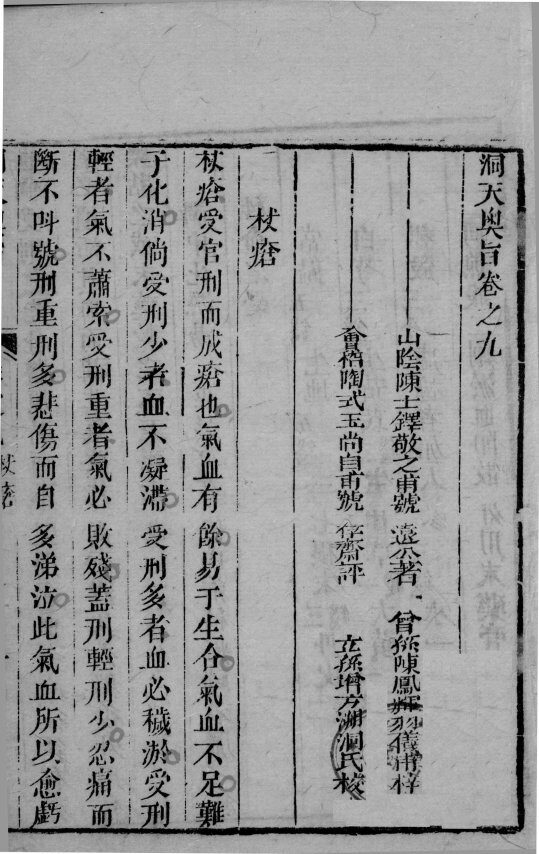 洞天奧旨卷之九
山陰陳士鐸敬之甫號遠公著 曾孫陳鳳輝羽儀甫梓
會稽陶式玉尚白甫號存齋評 玄孫增方湖洞氏校
杖瘡
杖瘡受官刑而成瘡也氣血有餘易于生合氣血不足難
于化消倘受刑少者血不凝滯受刑多者血必穢淤受刑
輕者氣不蕭索受刑重者氣必敗殘蓋刑輕刑少忍痛而
斷不叫號刑重刑多悲傷而自多涕泣此氣血所以愈虧
杖瘡